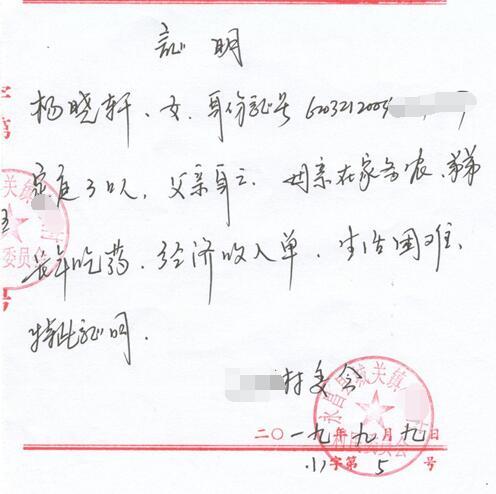 证明
杨晓轩、女、身份证号 6203212005
家庭3口人，父亲身亡，母亲在家务农、弟弟
长年吃药，经济收入单，生活困难，
特此证明。
村委会
永昌县城关镇
二〇一九年九月九日
字第5号
字第
关镇
委员会
号